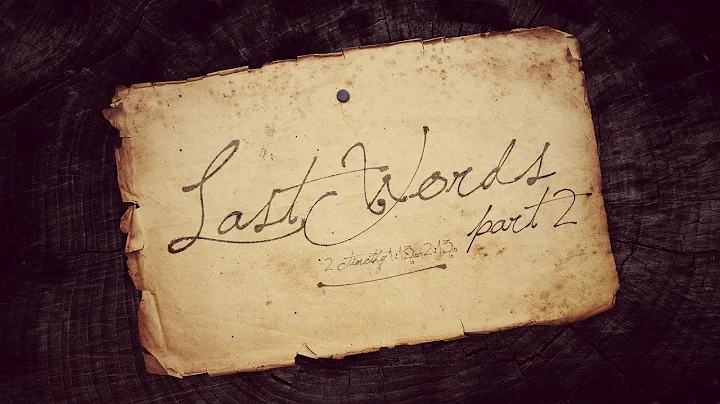 Last Words
part 2
2 Timothy 1:13-2:13